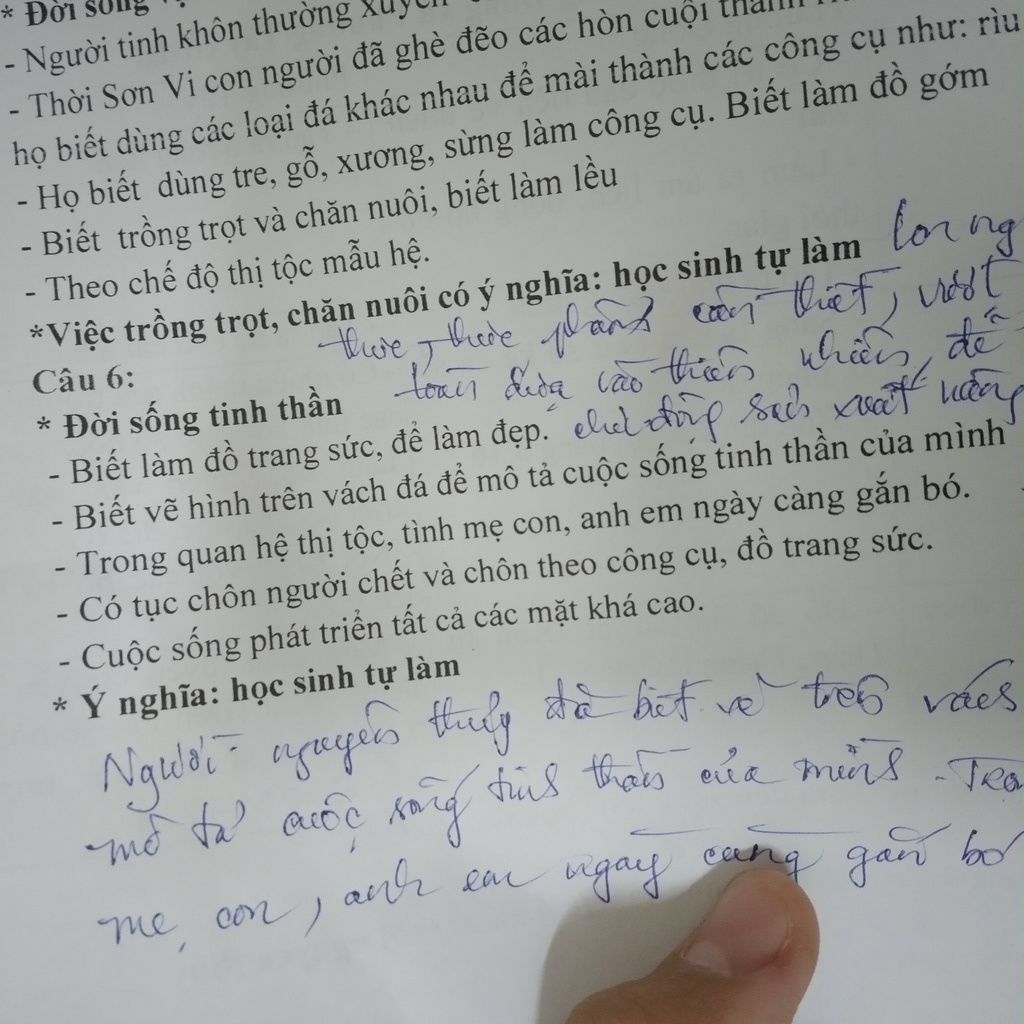 * Đời sống
- Người tinh khôn thường xuyên
- Thời Sơn Vi con người đã ghè đẽo các hòn cuội thành
họ biết dùng các loại đá khác nhau để mài thành các công cụ như: rìu
- Họ biết dùng tre, gỗ, xương, sừng làm công cụ. Biết làm đồ gớm
- Biết trồng trọt và chăn nuôi, biết làm lều
- Theo chế độ thị tộc mẫu hệ.
*Việc trồng trọt, chăn nuôi có ý nghĩa: học sinh tự làm con ng
thức, thức phẩm cần thiết, vượt
Câu 6:
toàn dựa vào thiên nhiên, để
* Đời sống tinh thần
- Biết làm đồ trang sức, để làm đẹp. chủ động sản xuất
- Biết vẽ hình trên vách đá để mô tả cuộc sống tinh thần của mình
- Trong quan hệ thị tộc, tình mẹ con, anh em ngày càng gắn bó.
- Có tục chôn người chết và chôn theo công cụ, đồ trang sức.
- Cuộc sống phát triển tất cả các mặt khá cao.
* Ý nghĩa: học sinh tự làm
Người nguyên thủy đã biết vẽ trên vách
mô tả cuộc sống tinh thần của mình - Tro
mẹ, con, anh em ngày càng gắn bó